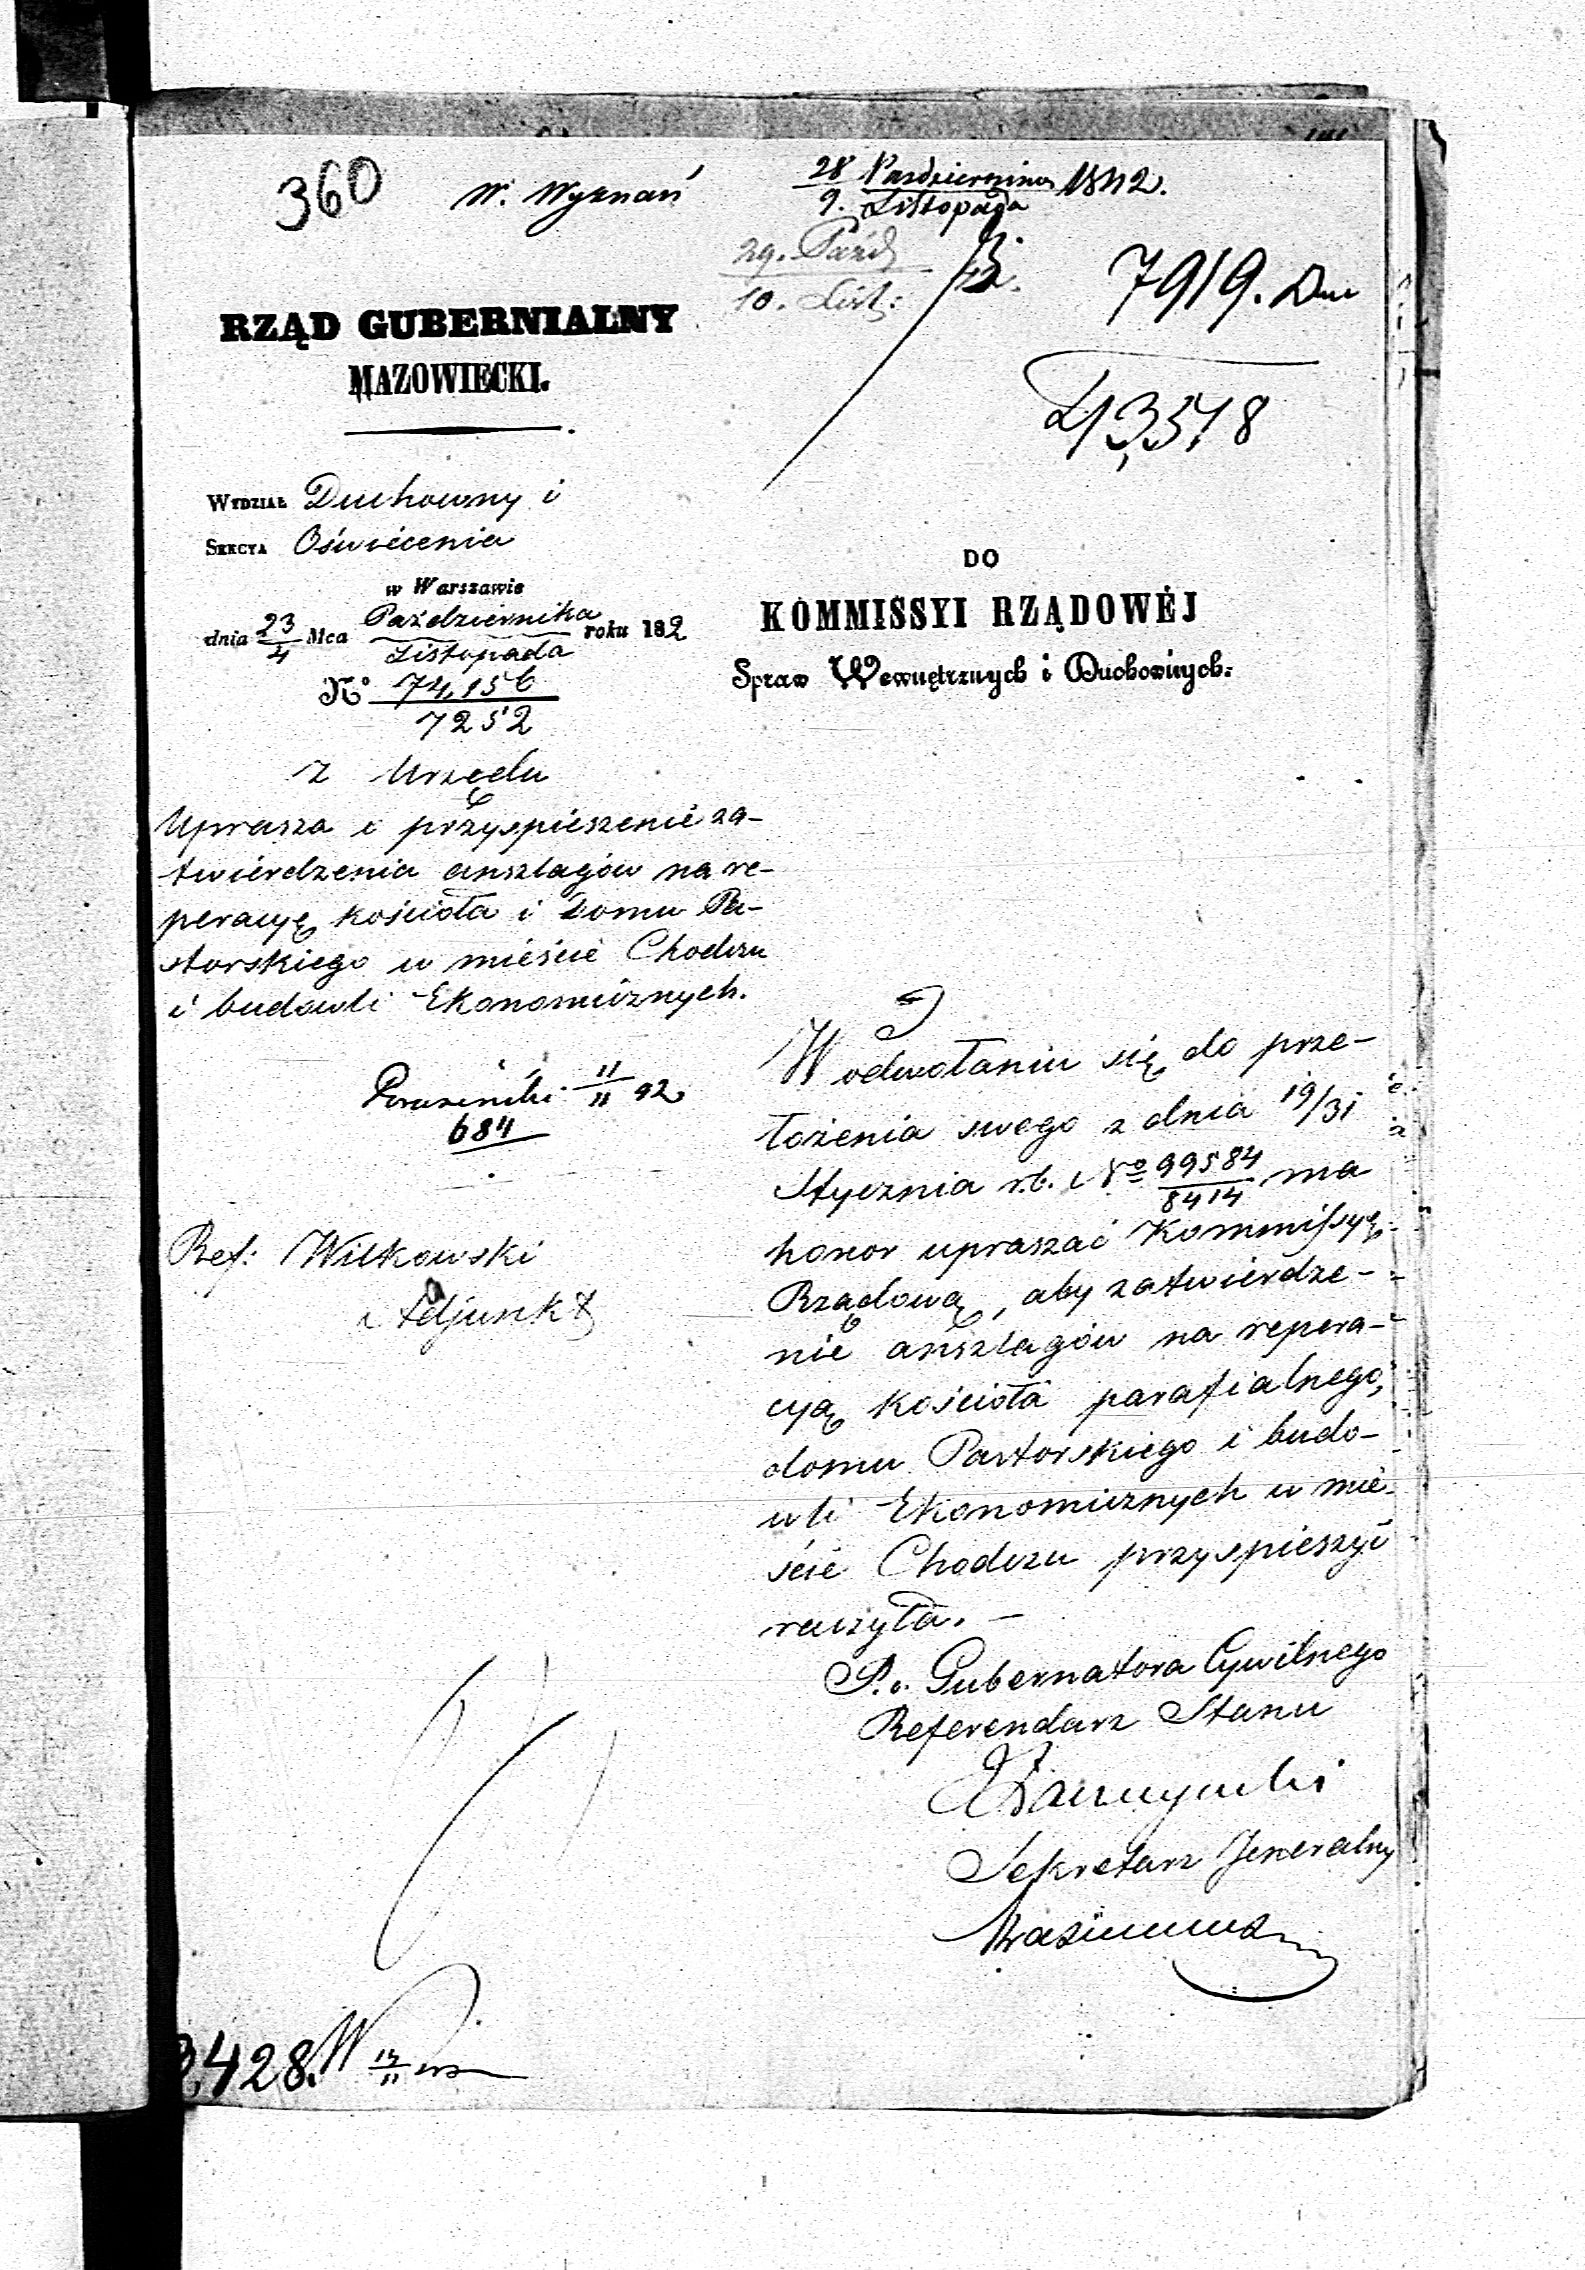 360
W. Wyznań
28 Października 1842.
9. Listopada
29. Paźd
10. List:
7919. Duc
43,578
RZĄD GUBERNIALNY
MAZOWIECKI.
WYDZIAŁ Duchowny i
SEKCYA Oświécenia
w Warszawie
dnia 23/4 Mca Października/Listopada roku 182
No 74,156
7252
Z Urzędu
Uprasza o przyspieszenie za-
twiérdzenia anszlagów na re-
peracyę kościoła i domu Pa-
storskiego w mieście Chodczu
i budowli Ekonomicznych.
11/11 42
684
Ref: Witkowski
Adjunkt
DO
KOMMISSYI RZĄDOWÉJ
Spraw Wewnętrznych i Duchownych.
W odwołaniu się do prze-
łożenia swego z dnia 19/31
Stycznia r.b. No 99584/8414 ma
honor upraszać Kommissyę
Rządową, aby zatwierdze-
nie anszlagów na repera-
cyą kościoła parafialnego,
domu Pastorskiego i budo-
wli Ekonomicznych w mie-
ście Chodczu przyspieszyć
raczyła. —
P.o. Gubernatora Cywilnego
Referendarz Stanu
Sekretarz Jeneralny
428. W